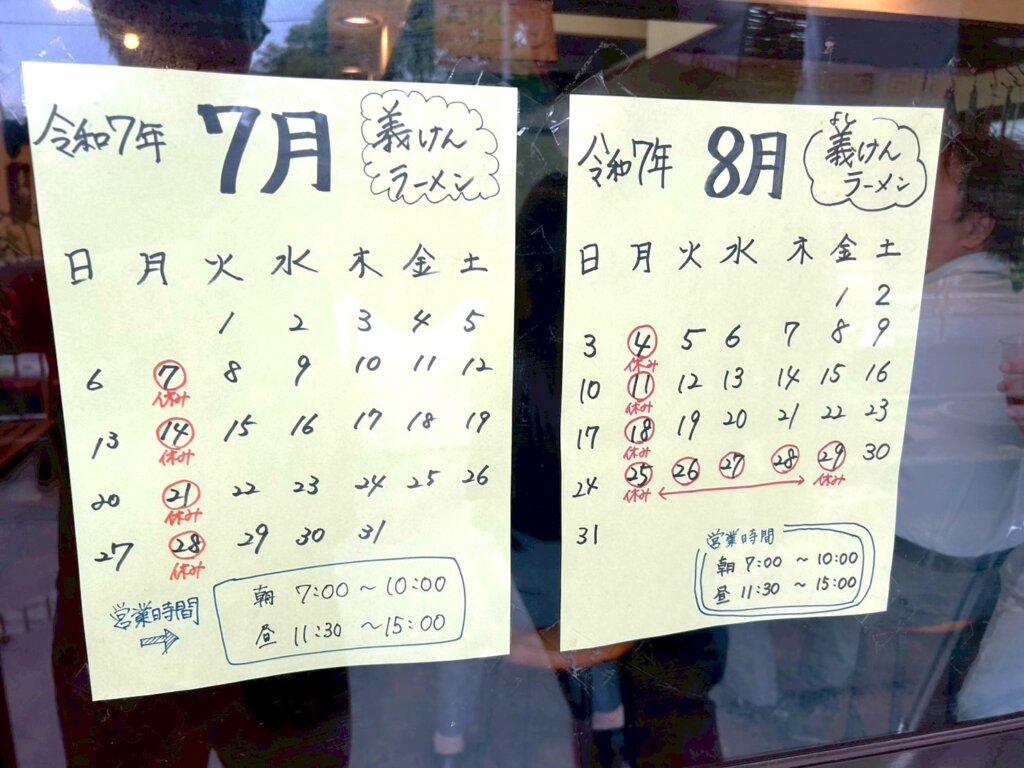 令和7年 7月 義けん
ラーメン
日 月 火 水 木 金 土
1 2 3 4 5
6 7 8 9 10 11 12
休み
13 14 15 16 17 18 19
休み
20 21 22 23 24 25 26
休み
27 28 29 30 31
休み
営業時間
朝 7:00 ～ 10:00
昼 11:30 ～ 15:00
令和7年 8月 義けん
よし
ラーメン
日 月 火 水 木 金 土
1 2
3 4 5 6 7 8 9
休み
10 11 12 13 14 15 16
休み
17 18 19 20 21 22 23
休み
24 25 26 27 28 29 30
休み 休み
31
営業時間
朝 7:00 ～ 10:00
昼 11:30 ～ 15:00